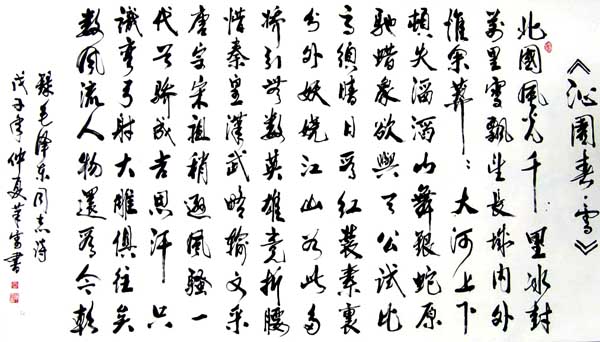 《沁園春·雪》
北國風光千里冰封
萬里雪飄望長城内外
惟余莽莽大河上下
頓失滔滔山舞銀蛇原
馳蜡象欲與天公試比
高須晴日看紅裝素裹
分外妖嬈江山如此多
嬌引無數英雄竞折腰
惜秦皇漢武略輸文采
唐宗宋祖稍遜風騷一
代天驕成吉思汗只
識彎弓射大雕俱往矣
數風流人物還看今朝
錄毛澤東同志詩
戊子年仲夏書